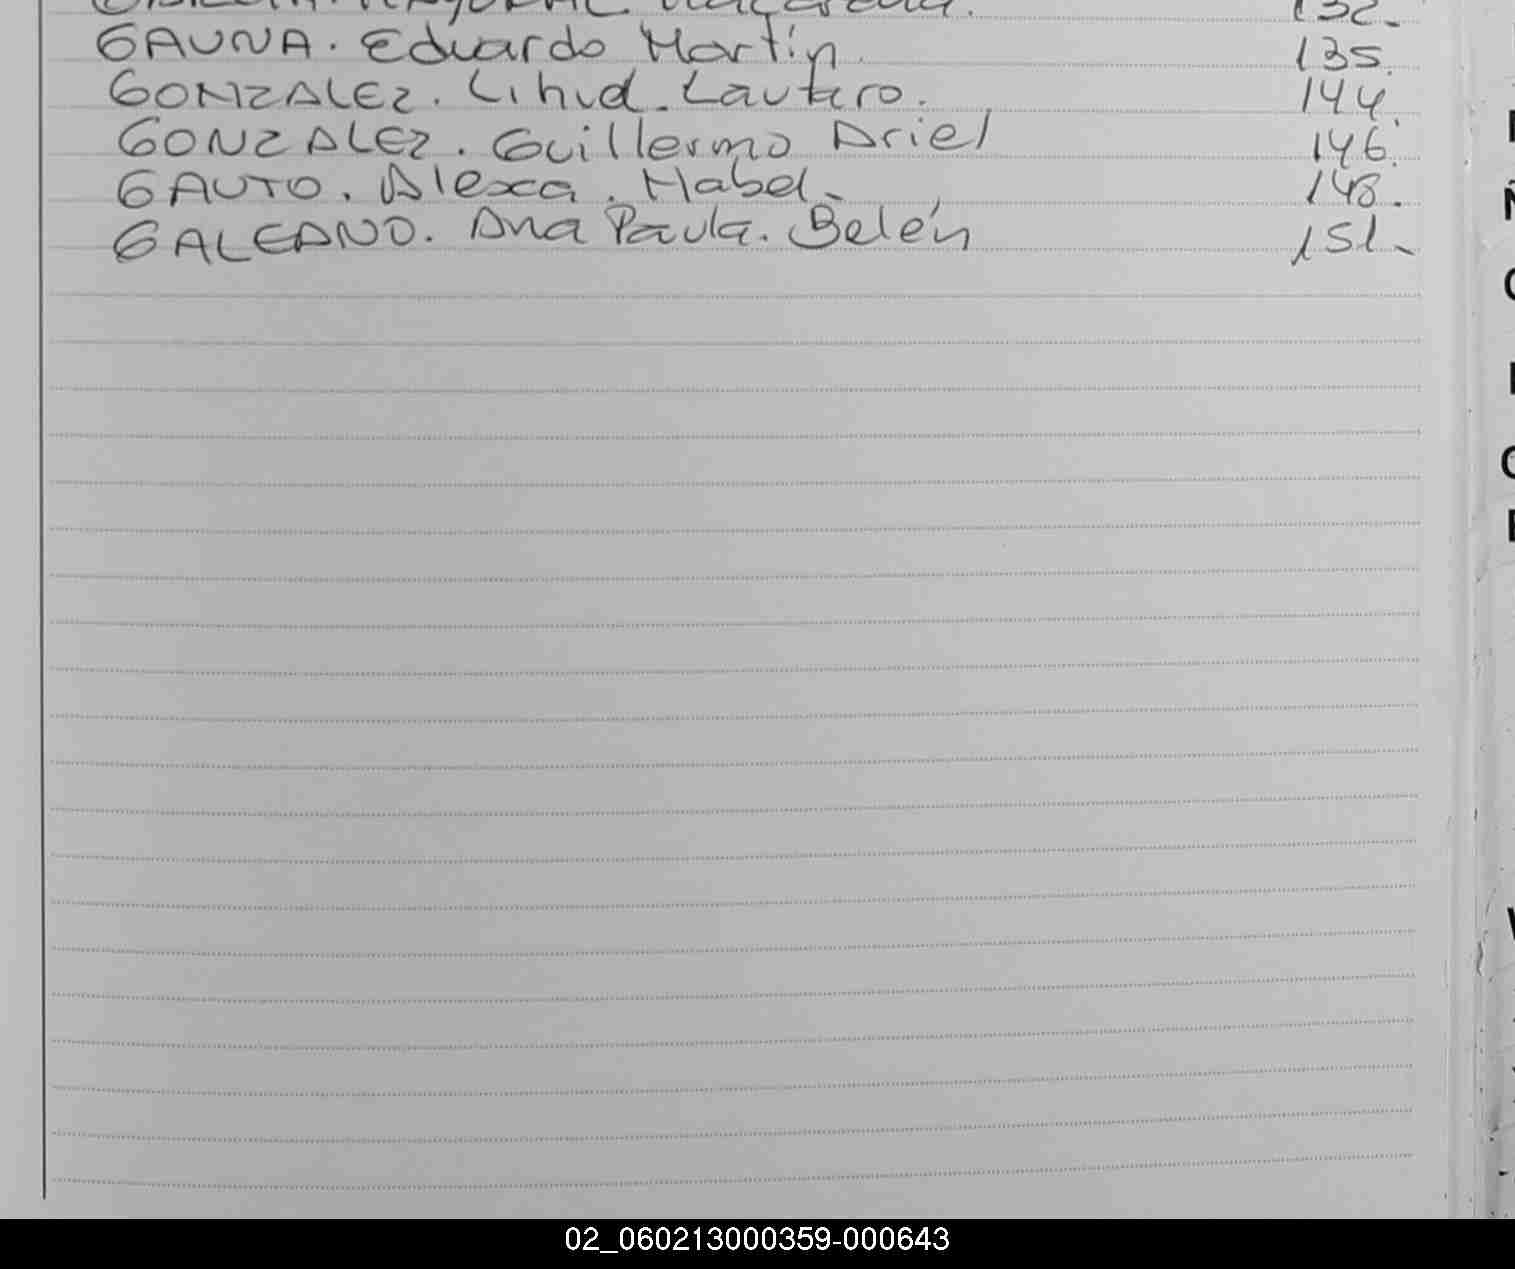 132.
GAUNA. Eduardo Martín. 135.
GONZALEZ. Lihud. Lautaro. 144.
GONZALEZ. Guillermo Ariel 146.
GAUTO. Alexa. Mabel. 148.
GALEANO. Ana Paula. Belén 151.
02_060213000359-000643